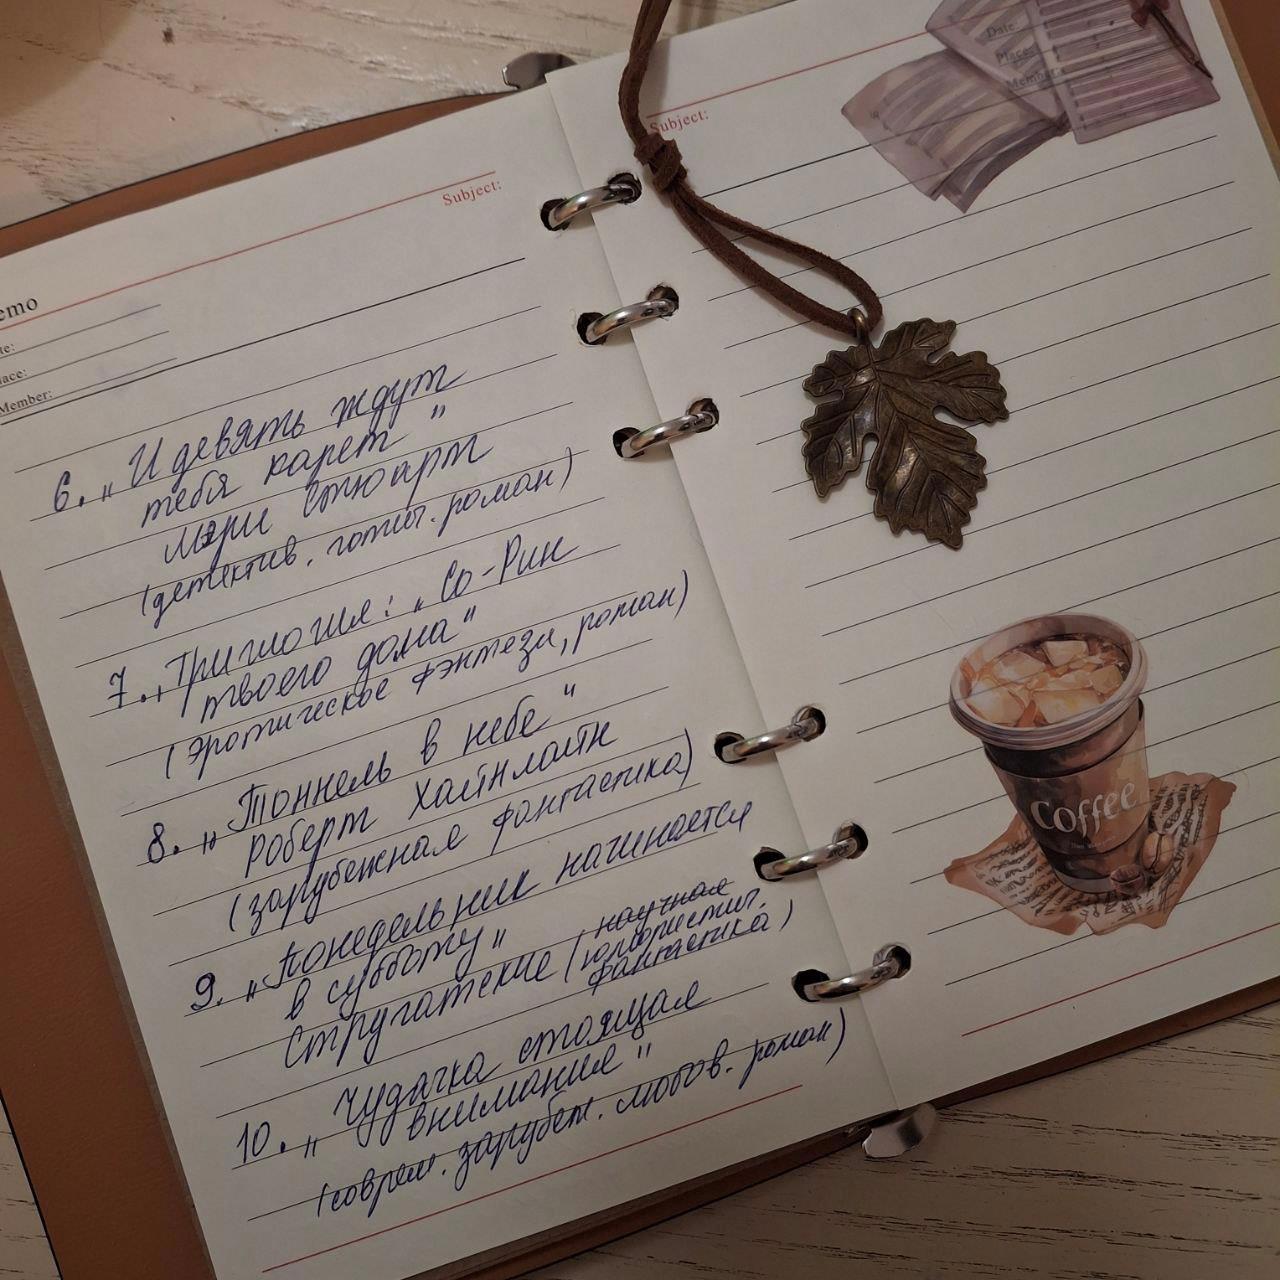 emo
te:
lace:
Member:
Subject:
6. „И девять ждут
тебя карет"
Мэри Стюарт
(детектив. готич. роман)
7. „Трилогия: „Со-Рин
твоего дома"
(эротическое фэнтези, роман)
8. „Тоннель в небе"
Роберт Хайнлайн
(зарубежная фантастика)
9. „Понедельник начинается
в субботу"
Стругатские (научная
юмористич.
фантастика)
10. „Чудачка стоящая
внимания"
(соврем. зарубеж. любов. роман)
Subject:
Date:
Place:
Member:
Coffee